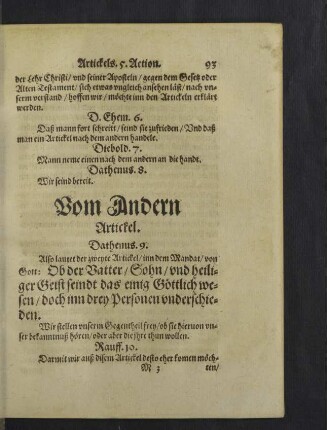 Artickels. 5. Action. 93
der Lehr Christi / vnd seiner Aposteln / gegen dem Gesetz oder
Alten Testament / sich etwas vngleich ansehen läst / nach vn-
serm verstand / hoffen wir / möchte inn den Artickeln erklärt
werden.
D. Ehem. 6.
Daß mann fort schreitt / seind sie zufrieden / Vnd daß
man ein Artickel nach dem andern handele.
Diebold. 7.
Mann neme einen nach dem andern an die handt.
Dathenus. 8.
Wir seind bereit.
Vom Andern
Artickel.
Dathenus. 9.
Also lautet der zweyte Artickel / inn dem Mandat / von
Gott: Ob der Vatter / Sohn / vnd heili-
ger Geist seindt das einig Göttlich we-
sen / doch inn drey Personen vnderschie-
den.
Wir stellen vnserm Gegentheil frey / ob sie hieruon vn-
ser bekanntnuß hören / oder aber die jhre thun wollen.
Rauff. 10.
Darmit wir auß disem Artickel desto eher komen möch-
M 3 ten /